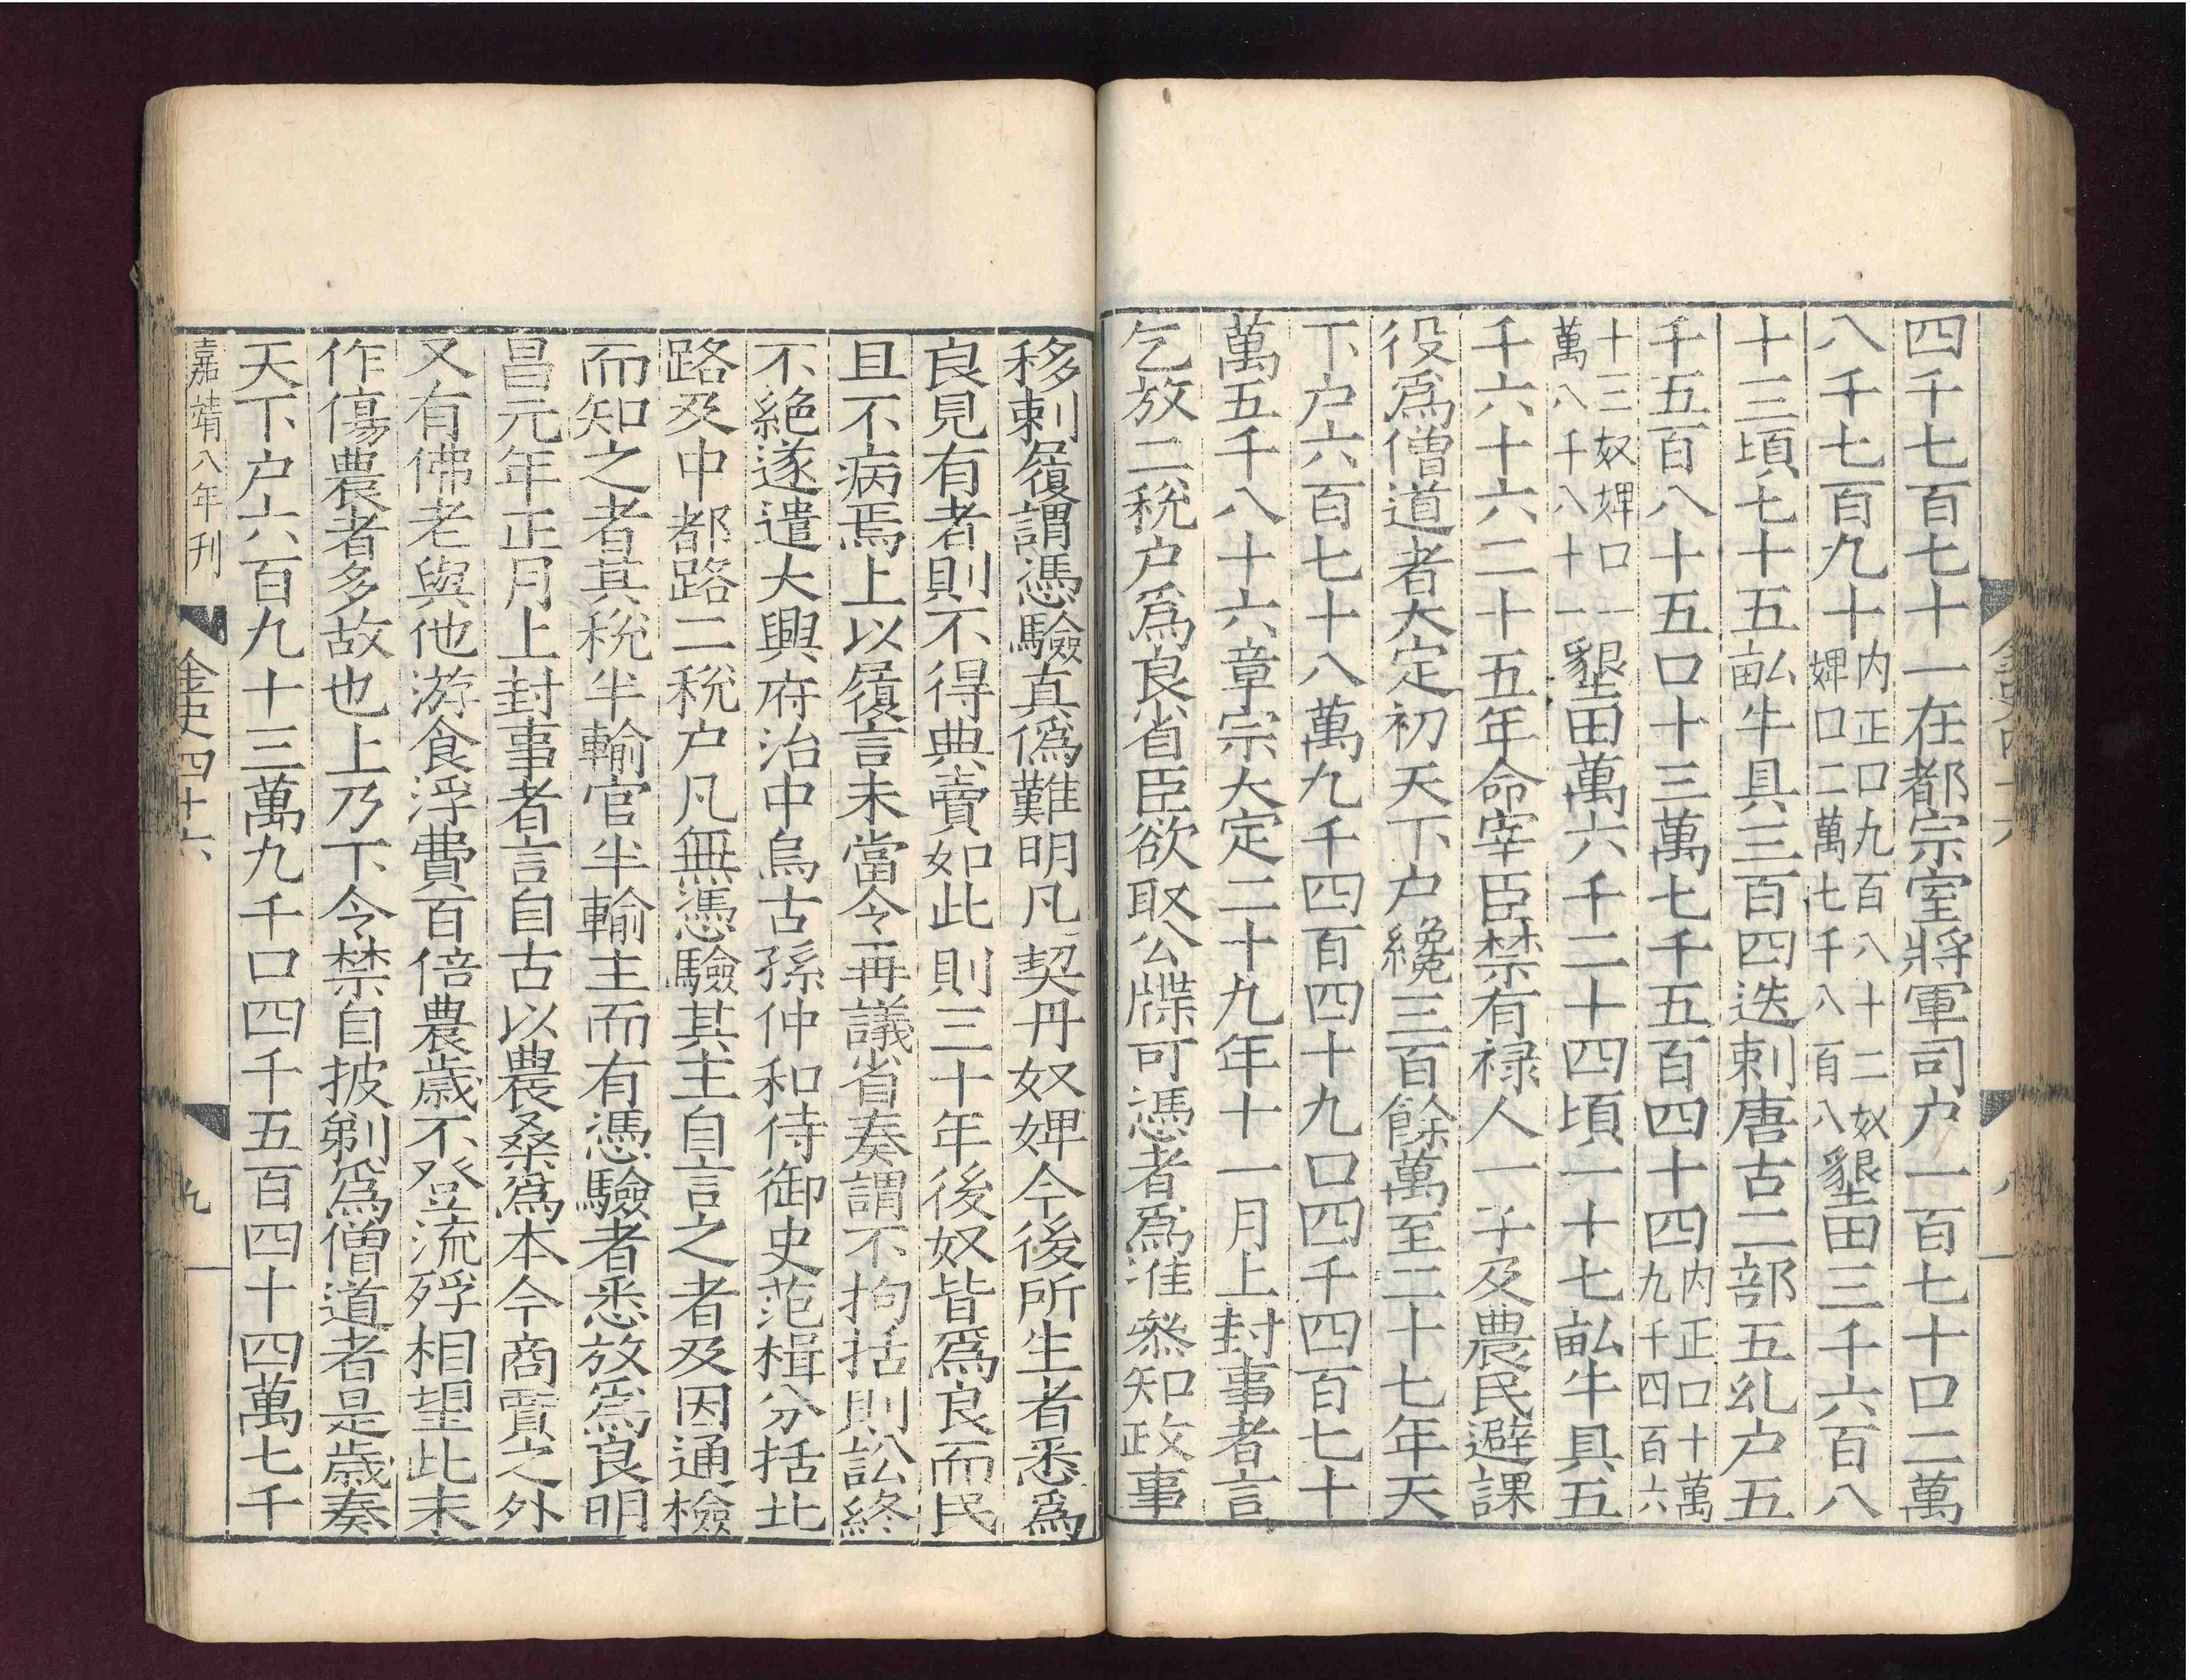 四千七百七十一在都宗室將軍司户一百七十口二萬
八千七百九十内正口九百八十二奴婢口二萬七千八百八墾田三千六百八
十三頃七十五畆牛具三百四迭剌唐古二部五乣户五
千五百八十五口十三萬七千五百四十四内正口十萬九千四百六
十三奴婢口一萬八千八十一墾田萬六千二十四頃一十七畆牛具五
千六十六二十五年命宰臣禁有禄人一子及農民避課
役爲僧道者大定初天下户纔三百餘萬至二十七年天
下户六百七十八萬九千四百四十九口四千四百七十
萬五千八十六章宗大定二十九年十一月上封事者言
乞放二稅户爲良省臣欲取公牒可憑者爲准叅知政事
移剌履謂憑驗真僞難明凡契丹奴婢今後所生者悉爲
良見有者則不得典賣如此則三十年後奴皆爲良而民
且不病焉上以履言未當令再議省奏謂不拘括則訟終
不絶遂遣大興府治中烏古孫仲和侍御史范楫分括北
路及中都路二稅户凡無憑驗其主自言之者及因通檢
而知之者其稅半輸官半輸主而有憑驗者悉放爲良明
昌元年正月上封事者言自古以農桑爲本今商賈之外
又有佛老與他游食浮費百倍農歲不登流殍相望此末
作傷農者多故也上乃下令禁自披剃爲僧道者是歲奏
天下户六百九十三萬九千口四千五百四十四萬七千
嘉靖八年刊
金史四十六
九